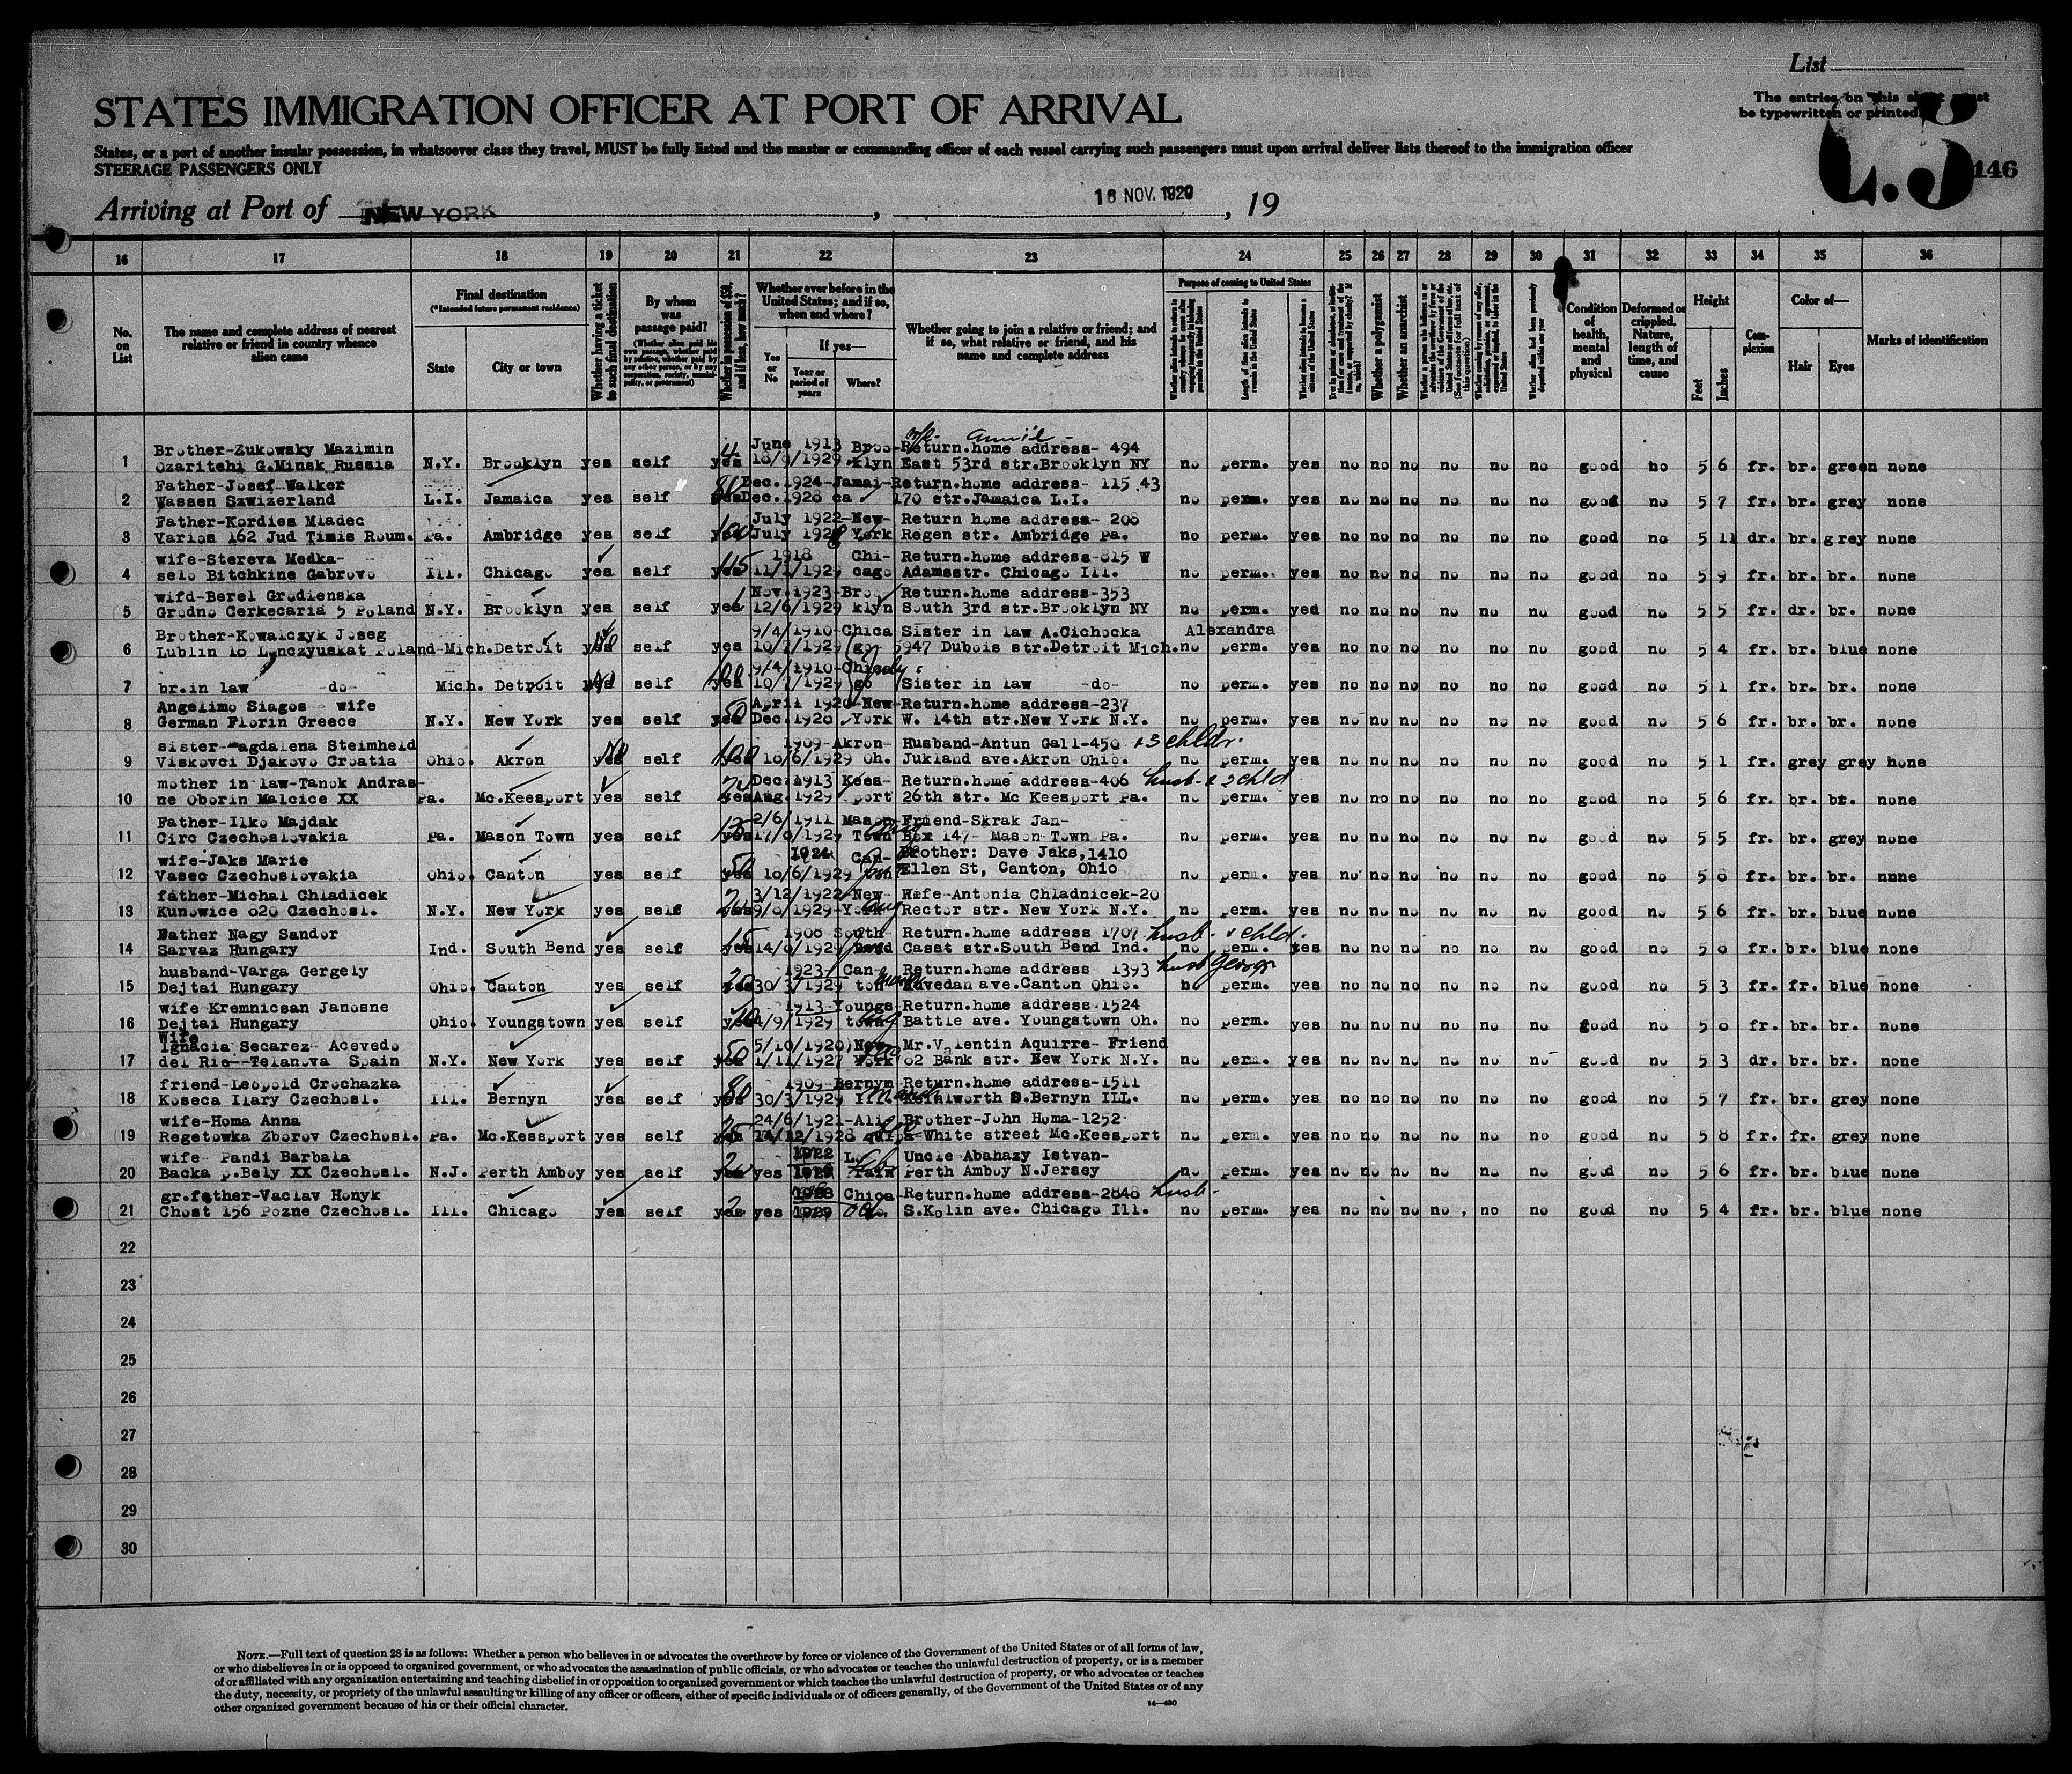 List
The entries on this sheet must
be typewritten or printed.
STATES IMMIGRATION OFFICER AT PORT OF ARRIVAL
146
States, or a port of another insular possession, in whatsoever class they travel, MUST be fully listed and the master or commanding officer of each vessel carrying such passengers must upon arrival deliver lists thereof to the immigration officer
STEERAGE PASSENGERS ONLY
Arriving at Port of NEW YORK, 16 NOV. 1929, 19
16 17 18 19 20 21 22 23 24 25 26 27 28 29 30 31 32 33 34 35 36
No. on List
The name and complete address of nearest relative or friend in country whence alien came
Final destination
(*Intended future permanent residence)
State City or town
Whether having a ticket to such final destination
By whom was passage paid?
Whether in possession of $50, and if less, how much?
Whether ever before in the United States; and if so, when and where?
Yes or No
If yes—
Year or period of years
Where?
Whether going to join a relative or friend; and if so, what relative or friend, and his name and complete address
Purpose of coming to United States
Whether a polygamist
Whether an anarchist
Condition of health, mental and physical
Deformed or crippled. Nature, length of time, and cause
Height
Feet Inches
Complexion
Color of—
Hair Eyes
Marks of identification
Brother-Zukowsky Mazimin June 1913 Broo-Return.home address- 494
1 Ozaritchi G.Minsk Russia N.Y. Brooklyn yes self yes 18/9/1929 klyn East 53rd str.Brooklyn NY no perm. yes no no no no no no good no 5 6 fr. br. green none
Father-Josef Walker Dec.1924-Jamai-Return.home address- 115.43
2 Wassen Szwizerland L.I. Jamaica yes self yes Dec.1928 ca 170 str.Jamaica L.I. no perm. yes no no no no no no good no 5 7 fr. br. grey none
Father-Kordies Mladec July 1922-New- Return home address- 208
3 Varias 162 Jud Timis Roum. Pa. Ambridge yes self yes July 1928 York Regen str. Ambridge Pa. no perm. yes no no no no no no good no 5 11 dr. br. grey none
wife-Stereva Medka- 1918 Chi- Return.home address-815 W
4 selo Bitchkine Gabrovo Ill. Chicago yes self yes 11/1/1929 cago Adamsstr. Chicago Ill. no perm. yes no no no no no no good no 5 9 fr. br. br. none
wifd-Berel Grudienska Nov.1923-Bro Return.home address-353
5 Grodno Cerkecaria 5 Poland N.Y. Brooklyn yes self yes 12/6/1929 klyn South 3rd str.Brooklyn NY no perm. yes no no no no no no good no 5 5 fr. dr. br. none
Brother-Kowalczyk Joseg 9/4/1910-Chica Sister in law A.Cichocka Alexandra
6 Lublin 18 Lenczyuskat Poland-Mich.Detroit self yes 10/7/1929 go 5947 Dubois str.Detroit Mich. no perm. yes no no no no no no good no 5 4 fr. br. blue none
9/4/1910-Chica
7 br.in law -do- Mich. Detroit self yes 10/7/1929 go Sister in law -do- no perm. yes no no no no no no good no 5 1 fr. br. br. none
Angelimo Siagos - wife April 1920-New-Return.home address-237
8 German Florin Greece N.Y. New York yes self yes Dec.1928 York W. 14th str.New York N.Y. no perm. yes no no no no no no good no 5 6 fr. br. br. none
sister-Magdalena Steimheld 1909-Akron- Husband-Antun Gall-450 +3 chldr.
9 Viskovci Djakovo Croatia Ohio. Akron No self 100 18/6/1929 Oh. Jukland ave.Akron Ohio. no perm. yes no no no no no no good no 5 1 fr. grey grey none
mother in law-Tanok Andras- Dec.1913 Kees- Return.home address-406 husb. & 2 chld
10 ne Oborin Malcice XX Pa. Mc.Keesport yes self yes Aug.1929 port 26th str. Mc Keesport Pa. no perm. yes no no no no no no good no 5 6 fr. br. br. none
Father-Ilko Majdak 2/6/1911 Mason-Friend-Skrak Jan-
11 Circ Czechoslovakia Pa. Mason Town yes self yes 17/8/1929 Town Box 147- Mason Town Pa. no perm. yes no no no no no no good no 5 5 fr. br. grey none
wife-Jaks Marie 1921 Can- Brother: Dave Jaks,1410
12 Vasec Czechoslovakia Ohio. Canton yes self yes 18/6/1929 Ellen St, Canton, Ohio no perm. yes no no no no no no good no 5 8 fr. br. br. none
father-Michal Chladicek 3/12/1922-New- Wife-Antonia Chladnicek-20
13 Kunowice 820 Czechosl. N.Y. New York yes self yes 9/8/1929-York Rector str. New York N.Y. no perm. yes no no no no no no good no 5 6 fr. br. blue none
Father Nagy Sandor 1908 South Return.home address 1707 husb. & chld.
14 Sarvaz Hungary Ind. South Bend yes self yes 14/8/1929 Bend Casat str.South Bend Ind. no perm. yes no no no no no no good no 5 8 fr. br. blue none
husband-Varga Gergely 1923- Can- Return.home address 1393 husb George
15 Dejtai Hungary Ohio. Canton yes self yes 30/3/1929 ton Kuvedan ave.Canton Ohio. no perm. yes no no no no no no good no 5 3 fr. fr. blue none
wife Kremnicsan Janosne 1913-Youngs Return.home address-1524
16 Dejtai Hungary Ohio. Youngstown yes self yes 4/9/1929 town Battle ave. Youngstown Oh. no perm. yes no no no no no no good no 5 8 fr. br. br. none
Wife
Ignacia Secarez- Acevedo 5/10/1920)New Mr.Valentin Aquirre- Friend
17 del Rio--Telanova Spain N.Y. New York yes self yes 1/11/1927 York 82 Bank str. New York N.Y. no perm. yes no no no no no no good no 5 3 dr. br. br. none
friend-Leopold Crochazka 1909-Bernyn Return.home address-1511
18 Koseca Ilary Czechosl. Ill. Bernyn yes self yes 30/3/1929 Ill. Kenilworth S.Bernyn ILL. no perm. yes no no no no no no good no 5 7 fr. br. grey none
wife-Homa Anna 24/6/1921-Ali- Brother-John Homa-1252
19 Regetowka Zborov Czechosl. Pa. Mc.Kessport yes self yes 14/12/1928 White street Mc.Keesport no perm. yes no no no no no no good no 5 8 fr. fr. grey none
wife- Pandi Barbala 1922 Uncle Abahazy Istvan-
20 Backa p.Bely XX Czechosl. N.J. Perth Amboy yes self yes yes 1929 Perth Amboy N.Jersey no perm. yes no no no no no no good no 5 6 fr. br. blue none
gr.father-Vaclav Honyk Chica-Return.home address-2848 husb-
21 Chost 156 Pozne Czechosl. Ill. Chicago yes self yes yes 1929 S.Kolin ave. Chicago Ill. no perm. yes no no no no no no good no 5 4 fr. br. blue none
22
23
24
25
26
27
28
29
30
NOTE.—Full text of question 28 is as follows: Whether a person who believes in or advocates the overthrow by force or violence of the Government of the United States or of all forms of law,
or who disbelieves in or is opposed to organized government, or who advocates the assassination of public officials, or who advocates or teaches the unlawful destruction of property, or is a member
of or affiliated with any organization entertaining and teaching disbelief in or opposition to organized government or which teaches the unlawful destruction of property, or who advocates or teaches
the duty, necessity, or propriety of the unlawful assaulting or killing of any officer or officers, either of specific individuals or of officers generally, of the Government of the United States or of any
other organized government because of his or their official character.
14—430